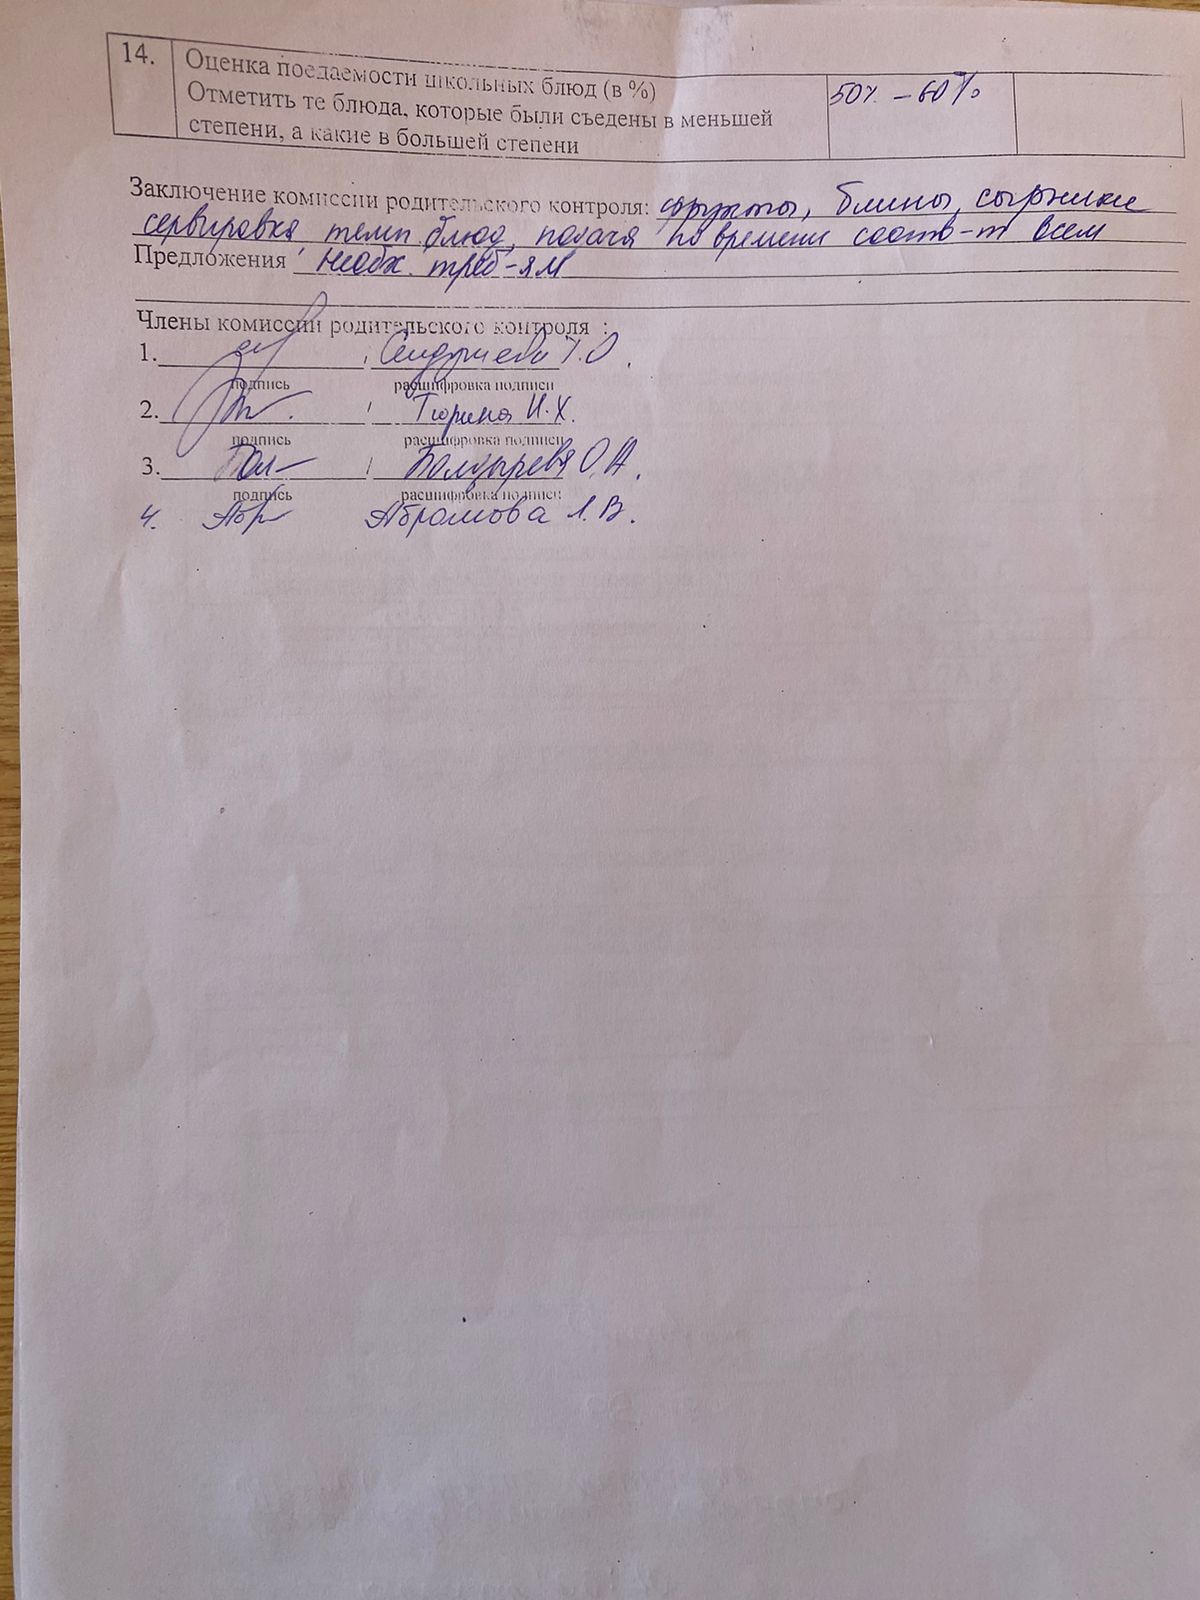 14.
Оценка поедаемости школьных блюд (в %)
50% – 60%
Отметить те блюда, которые были съедены в меньшей
степени, а какие в большей степени
Заключение комиссии родительского контроля: фрукты, блины, сырники
сервировка, темп. блюд, подача по времени соотв-т всем
Предложения необх. треб-ям
Члены комиссии родительского контроля :
1. / Т.О.
подпись расшифровка подписи
2. / Тюрина И.Х.
подпись расшифровка подписи
3. Бол / Болдырева О.А.
подпись расшифровка подписи
4. Абр Абрамова Л.В.